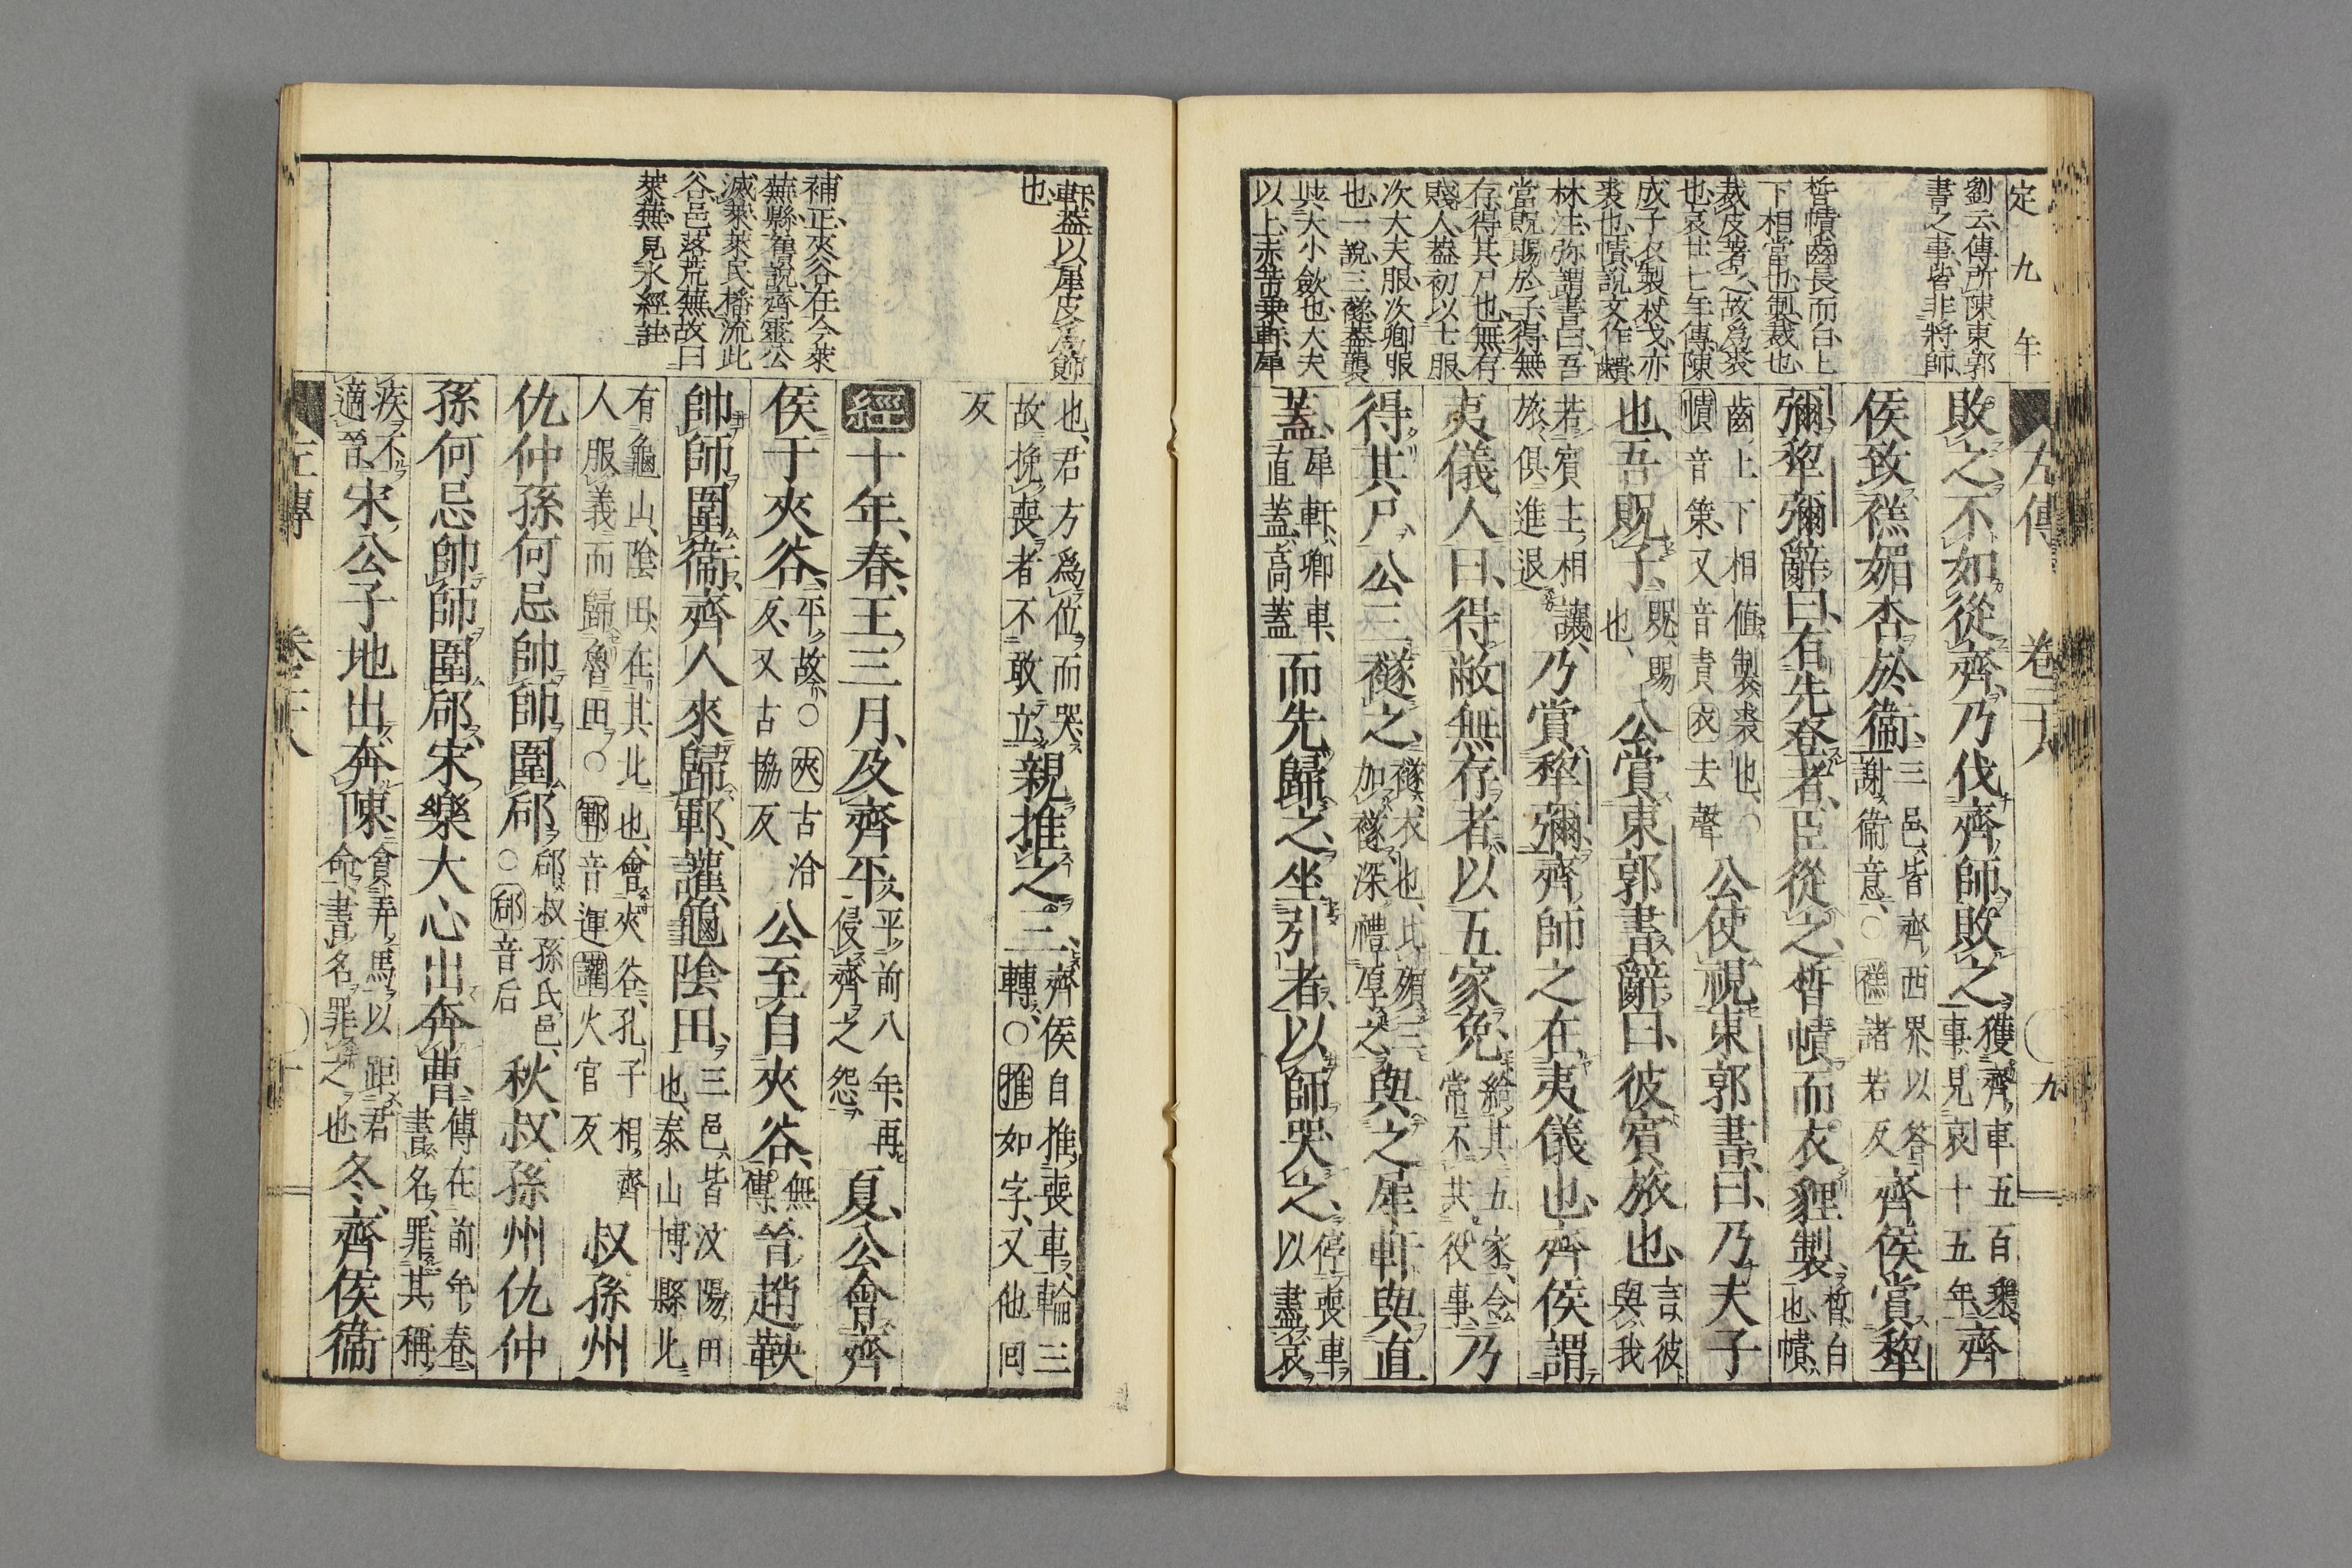 定九年
劉云傳所陳東郭
書之事皆非將師
皙幘齒長而白上
下相當也製裁也
裁皮著之故爲裘
也哀廿七年傳陳
成子衣製杖戈亦
裘也幘說文作䶦
林注弥謂書曰吾
當貺賜於子得無
存得其尸也無存
賤人蓋初以士服
次大夫服次卿服
也一說三襚蓋襲
與大小斂也大夫
以上赤芾乗軒犀
左傳 卷二十八 九
敗之不如從齊乃伐齊師敗之獲齊車五百乗事見哀十五年齊
侯致禚媚杏於衞三邑皆齊西界以荅謝衞意○禚諸若反齊侯賞犂
彌犂彌辭曰有先登者臣從之皙幘而衣貍製皙白也幘
齒上下相値製裘也○幘音策又音責衣去聲公使視東郭書曰乃夫子
也吾貺子貺賜也公賞東郭書辭曰彼賓旅也言彼與我
若賓主相讓旅俱進退乃賞犂彌齊師之在夷儀也齊侯謂
夷儀人曰得敝無存者以五家免給其五家令常不共役事乃
得其尸公三襚之襚衣也比殯三加襚深禮厚之與之犀軒與直
蓋犀軒卿車直蓋高蓋而先歸之坐引者以師哭之停喪車以盡哀
軒蓋以犀皮爲飾
也
補正夾谷在今萊
蕪縣舊說齊靈公
滅萊萊民播流此
谷邑落荒蕪故曰
萊蕪見水經註
也君方爲位而哭故挽喪者不敢立親推之三齊侯自推喪車輪三轉○推如字又他回
反
經十年春王三月及齊平平前八年再侵齊之怨夏公會齊
侯于夾谷平故○夾古洽反又古協反公至自夾谷無傳晉趙鞅
帥師圍衞齊人來歸鄆讙龜陰田三邑皆汶陽田也泰山博縣北
有龜山陰田在其北也會夾谷孔子相齊人服義而歸魯田○鄆音運讙火官反叔孫州
仇仲孫何忌帥師圍郈郈叔孫氏邑○郈音后秋叔孫州仇仲
孫何忌帥師圍郈宋樂大心出奔曹傳在前年春書名罪其稱
疾不適晉宋公子地出奔陳貪弄馬以距君命書名罪之也冬齊侯衞
左傳 卷二十八 十